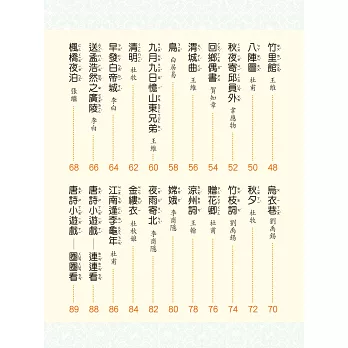 竹里館 王維 48
八陣圖 杜甫 50
秋夜寄邱員外 韋應物 52
回鄉偶書 賀知章 54
渭城曲 王維 56
鳥 白居易 58
九月九日憶山東兄弟 王維 60
清明 杜牧 62
早發白帝城 李白 64
送孟浩然之廣陵 李白 66
楓橋夜泊 張繼 68
烏衣巷 劉禹錫 70
秋夕 杜牧 72
竹枝詞 劉禹錫 74
贈花卿 杜甫 76
涼州詞 王翰 78
嫦娥 李商隱 80
夜雨寄北 李商隱 82
金縷衣 杜秋娘 84
江南逢李龜年 杜甫 86
唐詩小遊戲——連連看 88
唐詩小遊戲——圈圈看 89